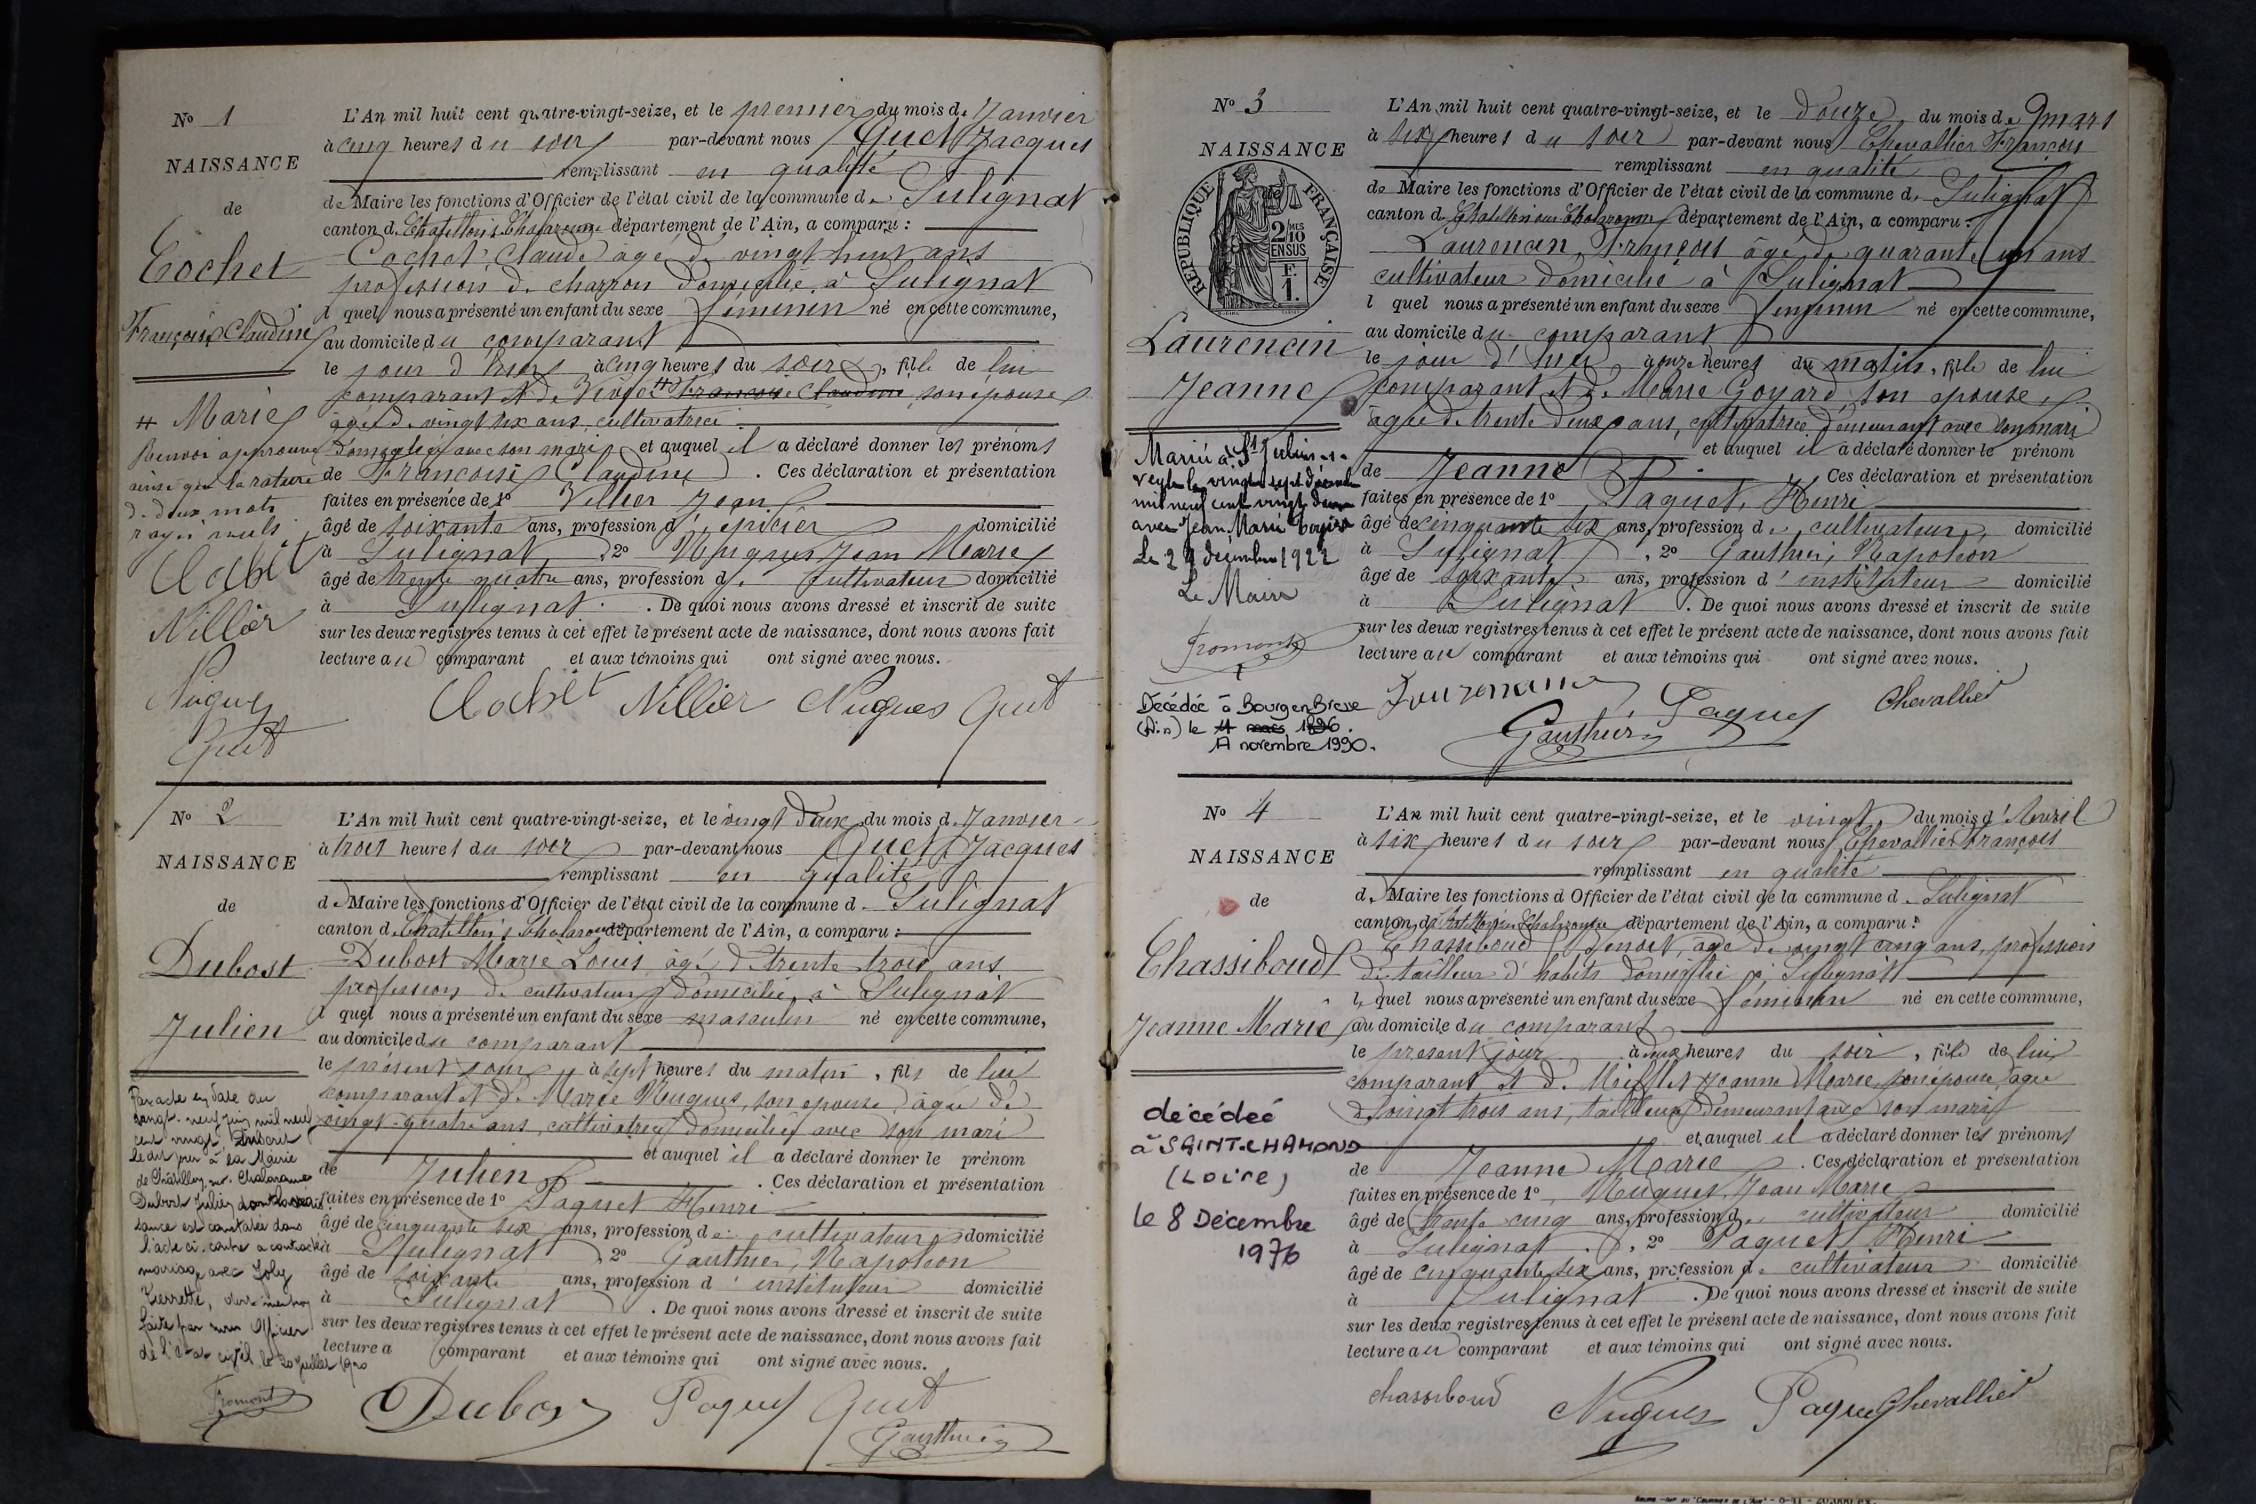 No 1
NAISSANCE
de
Cochet
Françoise Claudine
L'An mil huit cent quatre-vingt-seize, et le premier du mois de Janvier
à cinq heures du soir par-devant nous Guet Jacques
remplissant en qualité
de Maire les fonctions d'Officier de l'état civil de la commune de Sulignat
canton de Chatillon s. Chalaronne département de l'Ain, a comparu :
Cochet Claude âgé de vingt huit ans
profession de charron domicilié à Sulignat
l quel nous a présenté un enfant du sexe féminin né en cette commune,
au domicile du comparant
le jour d'hui à cinq heures du soir, fille de lui
comparant et de Françoise Claudine son épouse
âgée de vingt six ans, cultivatrice
domiciliée avec son mari et auquel il a déclaré donner les prénoms
de Françoise Claudine. Ces déclaration et présentation
faites en présence de 1º Villier Jean
âgé de soixante ans, profession d'épicier domicilié
à Sulignat 2º Nugues Jean Marie
âgé de trente quatre ans, profession de cultivateur domicilié
à Sulignat. De quoi nous avons dressé et inscrit de suite
sur les deux registres tenus à cet effet le présent acte de naissance, dont nous avons fait
lecture au comparant et aux témoins qui ont signé avec nous.
Cochet Villier Nugues Guet
# Marie
Renvoi approuvé
ainsi que la rature
de deux mots
rayés nuls
Cochet
Villier
Nugues
Guet
No 2
NAISSANCE
de
Dubost
Julien
L'An mil huit cent quatre-vingt-seize, et le vingt deux du mois de Janvier
à trois heures du soir par-devant nous Guet Jacques
remplissant en qualité
de Maire les fonctions d'Officier de l'état civil de la commune de Sulignat
canton de Chatillon s. Chalaronne département de l'Ain, a comparu :
Dubost Marie Louis âgé de trente trois ans
profession de cultivateur domicilié à Sulignat
l quel nous a présenté un enfant du sexe masculin né en cette commune,
au domicile du comparant
le présent jour à sept heures du matin, fils de lui
comparant et de Marie Nugues, son épouse âgée de
vingt-quatre ans, cultivatrice domiciliée avec son mari
et auquel il a déclaré donner le prénom
de Julien. Ces déclaration et présentation
faites en présence de 1º Paquet Henri
âgé de cinquante six ans, profession de cultivateur domicilié
à Sulignat 2º Gauthier, Napoléon
âgé de soixante ans, profession d'instituteur domicilié
à Sulignat. De quoi nous avons dressé et inscrit de suite
sur les deux registres tenus à cet effet le présent acte de naissance, dont nous avons fait
lecture a comparant et aux témoins qui ont signé avec nous.
Dubost Paquet Guet
Gauthier
Par acte en date du
vingt-neuf juin mil neuf
cent vingt inscrit
le dit jour à la Mairie
de Châtillon sur Chalaronne
Dubost Julien dont la nais
sance est constatée dans
l'acte ci-contre a contracté
mariage avec Joly
Pierrette, dont mention
faite par nous Officier
de l'état civil le 20 juillet 1920
Fromont
No 3
NAISSANCE
de
RÉPUBLIQUE FRANÇAISE
2 MES
10
EN SUS
F.
1.
Laurencin
Jeanne
L'An mil huit cent quatre-vingt-seize, et le douze du mois de mars
à six heures du soir par-devant nous Chevallier François
remplissant en qualité
de Maire les fonctions d'Officier de l'état civil de la commune de Sulignat
canton de Chatillon sur Chalaronne département de l'Ain, a comparu :
Laurencin, François âgé de quarante un ans
cultivateur domicilié à Sulignat
l quel nous a présenté un enfant du sexe féminin né en cette commune,
au domicile du comparant
le jour d'hui à onze heures du matin, fille de lui
comparant et de Marie Goyard, son épouse,
âgée de trente deux ans, cultivatrice demeurant avec son mari
et auquel il a déclaré donner le prénom
de Jeanne Ces déclaration et présentation
faites en présence de 1º Paquet, Henri
âgé de cinquante six ans, profession de cultivateur, domicilié
à Sulignat, 2º Gauthier, Napoléon
âgé de soixante ans, profession d'instituteur domicilié
à Sulignat. De quoi nous avons dressé et inscrit de suite
sur les deux registres tenus à cet effet le présent acte de naissance, dont nous avons fait
lecture au comparant et aux témoins qui ont signé avec nous.
Paquet Chevallier
Gauthier
Marié à St Julien s.
Veyle le vingt sept décembre
mil neuf cent vingt deux
avec Jean Marie
Le 29 décembre 1922
Le Maire
Fromont
Décédée à Bourg en Bresse
(Ain) le 11 mars 1896.
11 novembre 1990.
No 4
NAISSANCE
de
Chassiboud
Jeanne Marie
L'An mil huit cent quatre-vingt-seize, et le vingt du mois d'Avril
à six heures du soir par-devant nous Chevallier François
remplissant en qualité
de Maire les fonctions d'Officier de l'état civil de la commune de Sulignat
canton de Chatillon sur Chalaronne département de l'Ain, a comparu :
Chassiboud Benoit, âgé de vingt cinq ans, profession
de tailleur d'habits domicilié à Sulignat
le quel nous a présenté un enfant du sexe féminin né en cette commune,
au domicile du comparant
le présent jour à deux heures du soir, fille de lui
comparant et de Jeanne Marie son épouse âgée
de vingt trois ans, demeurant avec son mari
et auquel il a déclaré donner les prénoms
de Jeanne Marie. Ces déclaration et présentation
faites en présence de 1º, Nugues, Jean Marie
âgé de trente cinq ans, profession de cultivateur domicilié
à Sulignat, 2º Paquet Henri
âgé de cinquante six ans, profession de cultivateur domicilié
à Sulignat. De quoi nous avons dressé et inscrit de suite
sur les deux registres tenus à cet effet le présent acte de naissance, dont nous avons fait
lecture au comparant et aux témoins qui ont signé avec nous.
Chassiboud Nugues Paquet Chevallier
décédée
à SAINT-CHAMOND
(Loire)
le 8 Décembre
1976